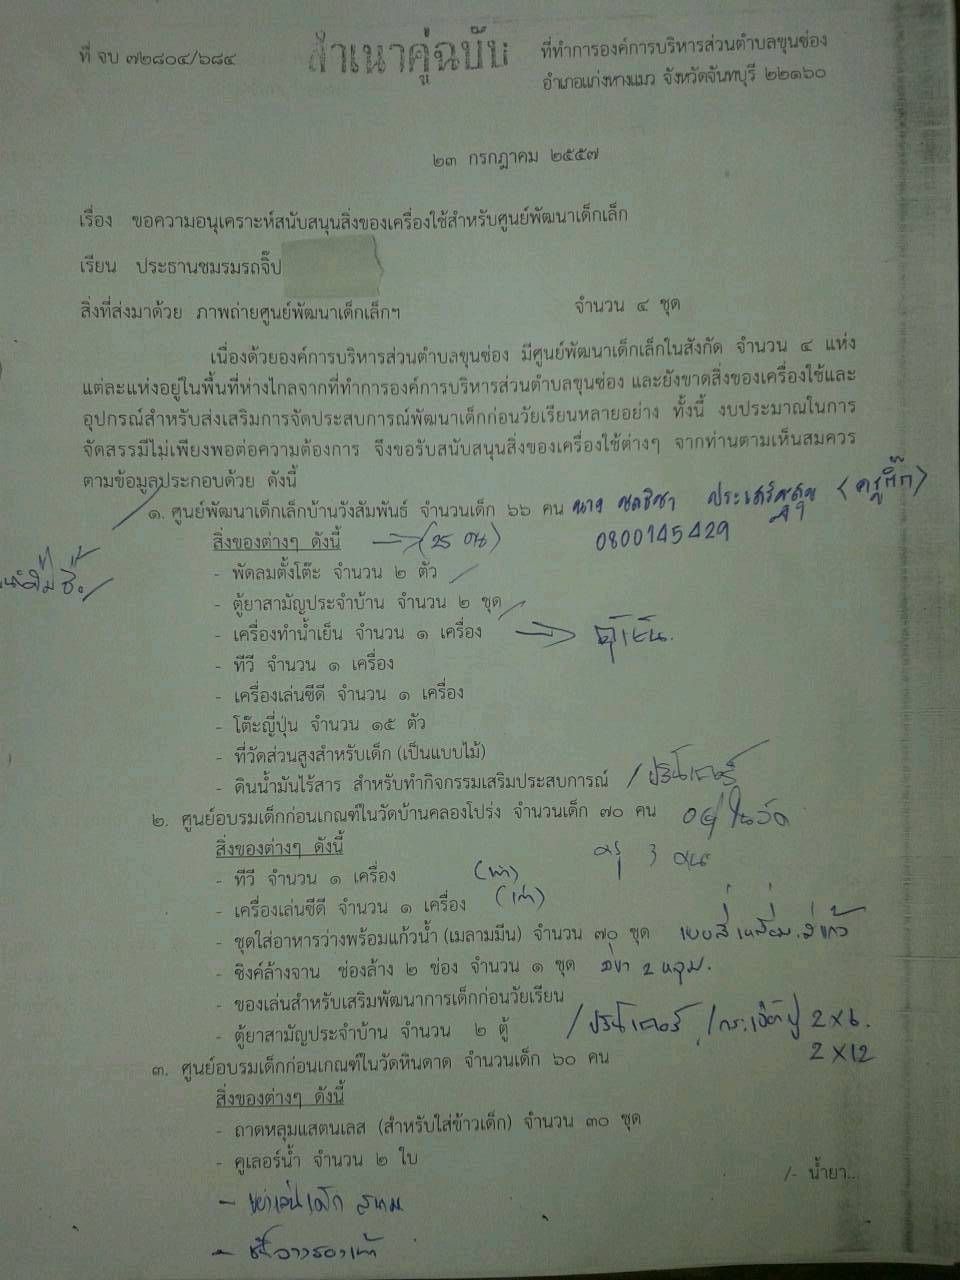 ที่ จบ ๗๒๘๐๔/๖๘๔
สำเนาคู่ฉบับ
ที่ทำการองค์การบริหารส่วนตำบลขุนซ่อง
อำเภอแก่งหางแมว จังหวัดจันทบุรี ๒๒๑๖๐
๒๓ กรกฎาคม ๒๕๕๗
เรื่อง ขอความอนุเคราะห์สนับสนุนสิ่งของเครื่องใช้สำหรับศูนย์พัฒนาเด็กเล็ก
เรียน ประธานชมรมรถจิ๊ป
สิ่งที่ส่งมาด้วย ภาพถ่ายศูนย์พัฒนาเด็กเล็กฯ จำนวน ๔ ชุด
เนื่องด้วยองค์การบริหารส่วนตำบลขุนซ่อง มีศูนย์พัฒนาเด็กเล็กในสังกัด จำนวน ๔ แห่ง
แต่ละแห่งอยู่ในพื้นที่ห่างไกลจากที่ทำการองค์การบริหารส่วนตำบลขุนซ่อง และยังขาดสิ่งของเครื่องใช้และ
อุปกรณ์สำหรับส่งเสริมการจัดประสบการณ์พัฒนาเด็กก่อนวัยเรียนหลายอย่าง ทั้งนี้ งบประมาณในการ
จัดสรรมีไม่เพียงพอต่อความต้องการ จึงขอรับสนับสนุนสิ่งของเครื่องใช้ต่างๆ จากท่านตามเห็นสมควร
ตามข้อมูลประกอบด้วย ดังนี้
๑. ศูนย์พัฒนาเด็กเล็กบ้านวังสัมพันธ์ จำนวนเด็ก ๖๖ คน นาง ประเสริฐสุข
0800145429
สิ่งของต่างๆ ดังนี้ (25 คน)
- พัดลมตั้งโต๊ะ จำนวน ๒ ตัว
- ตู้ยาสามัญประจำบ้าน จำนวน ๒ ชุด
- เครื่องทำน้ำเย็น จำนวน ๑ เครื่อง ตู้เย็น.
- ทีวี จำนวน ๑ เครื่อง
- เครื่องเล่นซีดี จำนวน ๑ เครื่อง
- โต๊ะญี่ปุ่น จำนวน ๑๕ ตัว
- ที่วัดส่วนสูงสำหรับเด็ก (เป็นแบบไม้)
- ดินน้ำมันไร้สาร สำหรับทำกิจกรรมเสริมประสบการณ์ / ปริ้นเตอร์
๒. ศูนย์อบรมเด็กก่อนเกณฑ์ในวัดบ้านคลองโปร่ง จำนวนเด็ก ๗๐ คน อยู่ในวัด
สิ่งของต่างๆ ดังนี้ ครู 3 คน
- ทีวี จำนวน ๑ เครื่อง (เก่า)
- เครื่องเล่นซีดี จำนวน ๑ เครื่อง (เก่า)
- ชุดใส่อาหารว่างพร้อมแก้วน้ำ (เมลามมีน) จำนวน ๗๐ ชุด แบบสี่เหลี่ยม. มีแก้ว
- ซิงค์ล้างจาน ช่องล้าง ๒ ช่อง จำนวน ๑ ชุด มีขา 2 หลุม.
- ของเล่นสำหรับเสริมพัฒนาการเด็กก่อนวัยเรียน
- ตู้ยาสามัญประจำบ้าน จำนวน ๒ ตู้ / ปริ้นเตอร์ / 2x6.
2x12
๓. ศูนย์อบรมเด็กก่อนเกณฑ์ในวัดหินดาด จำนวนเด็ก ๖๐ คน
สิ่งของต่างๆ ดังนี้
- ถาดหลุมแสตนเลส (สำหรับใส่ข้าวเด็ก) จำนวน ๓๐ ชุด
- คูเลอร์น้ำ จำนวน ๒ ใบ
/- น้ำยา...
- สนาม
- ชั้นวางรองเท้า